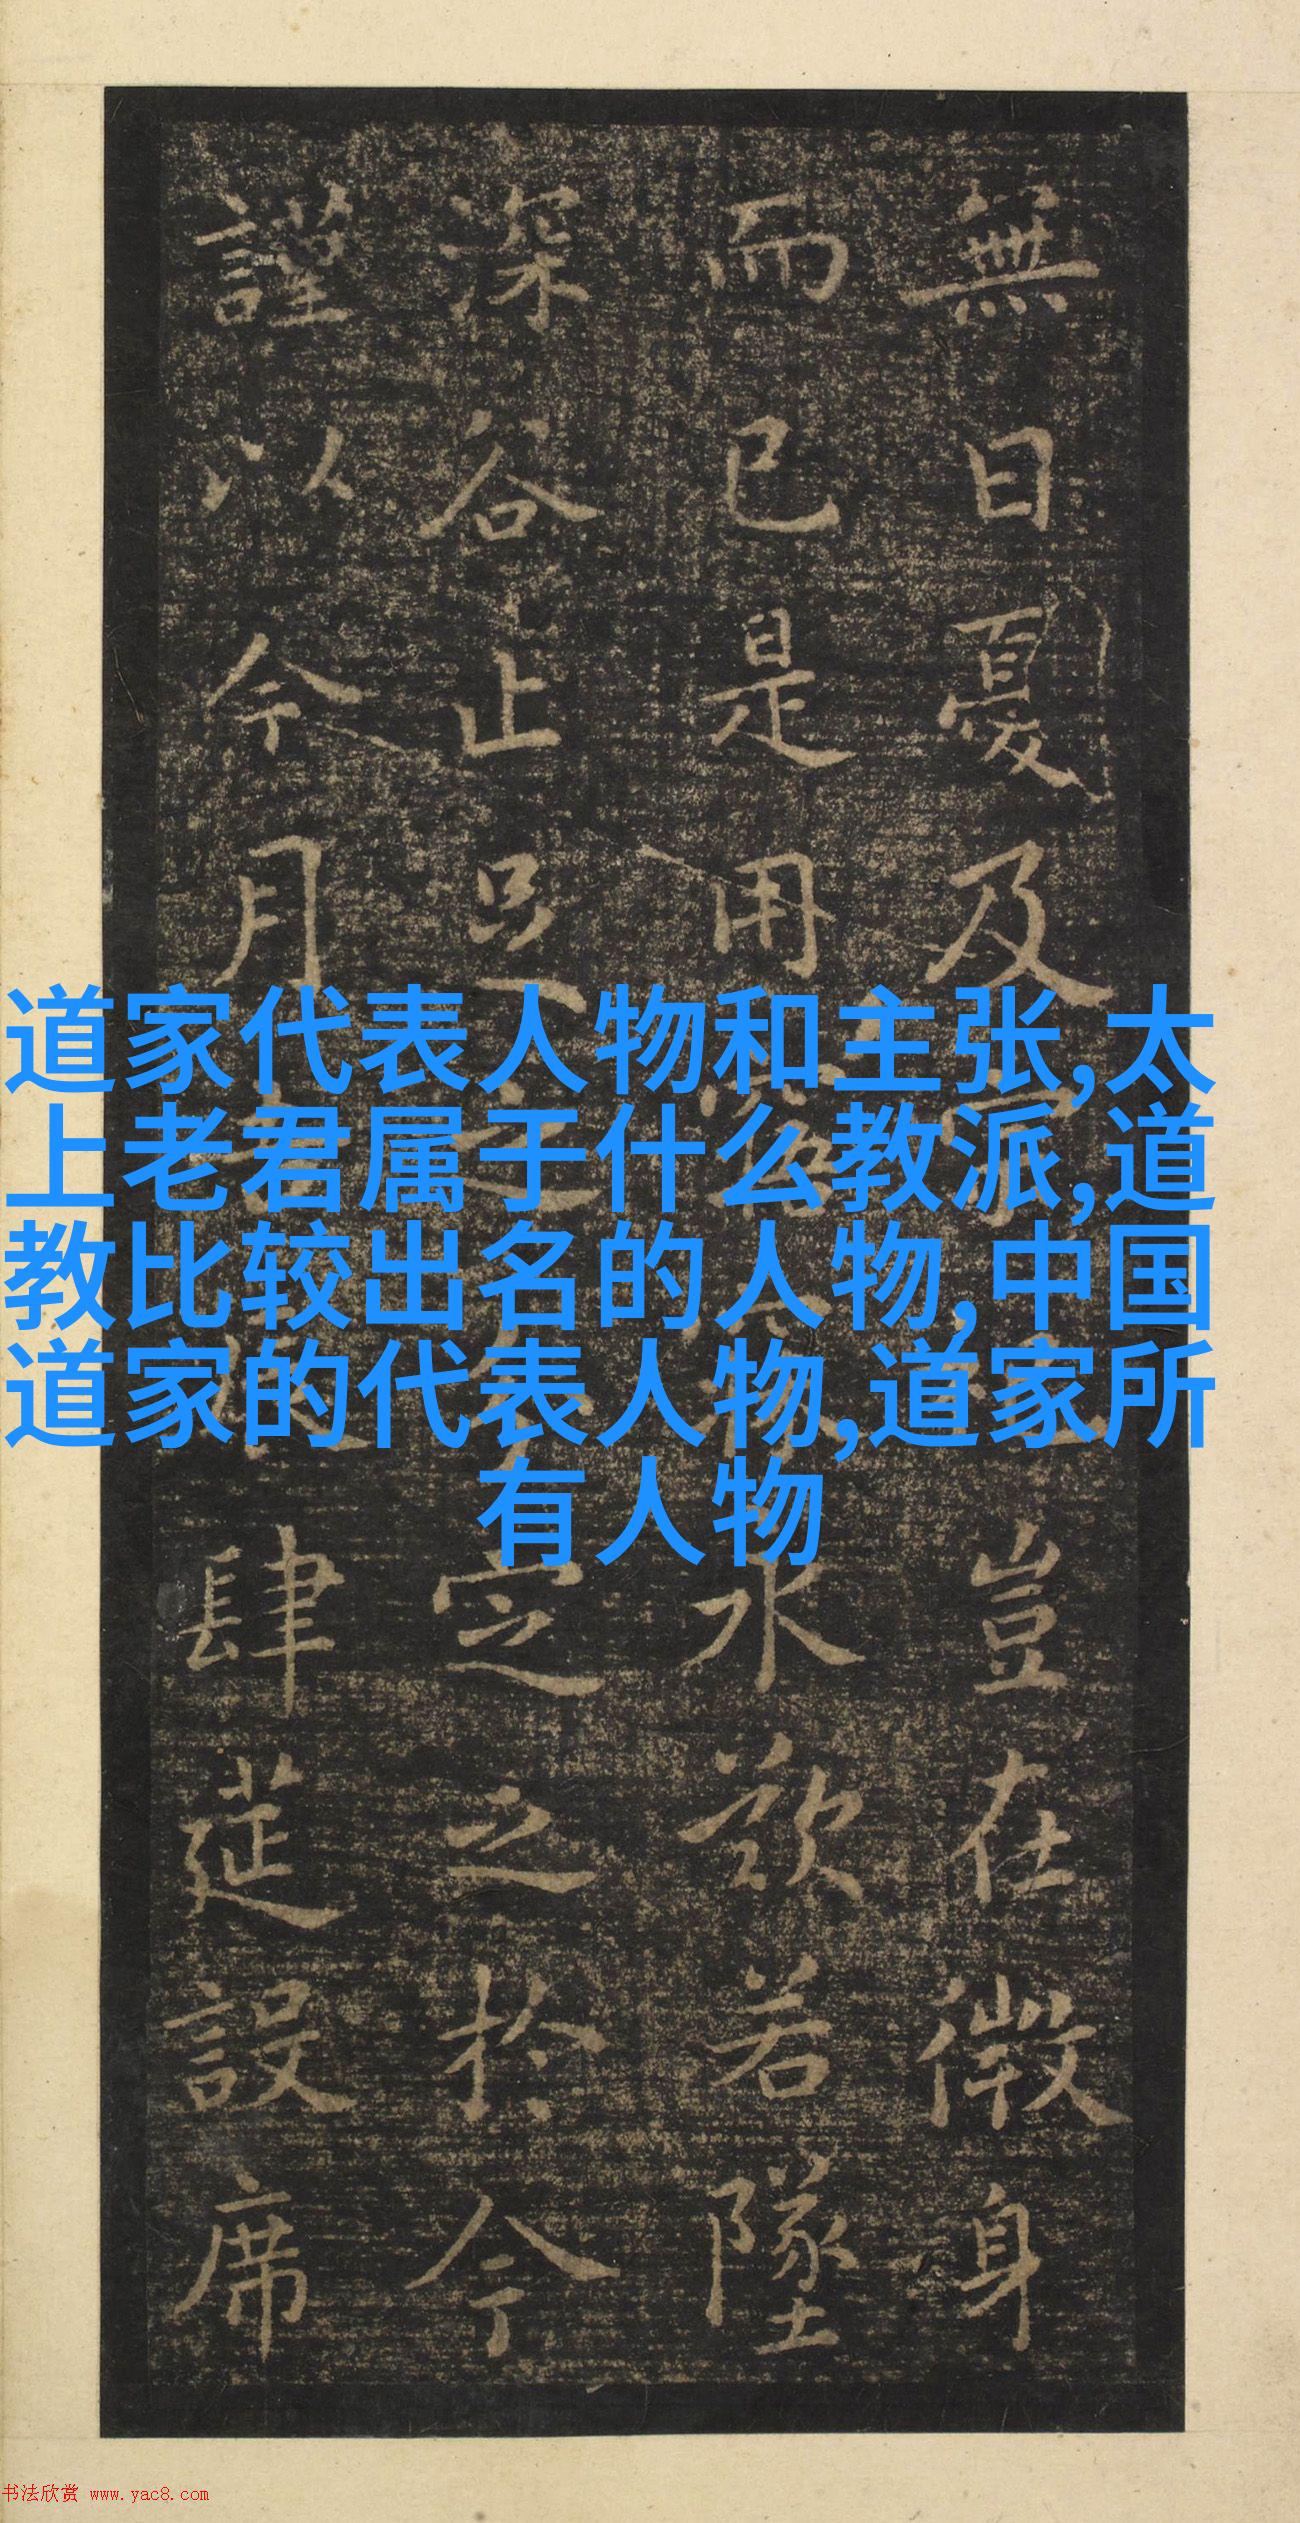 無日憂及豈在微身
而已是用水欲若墜
深谷止足之定之於今
謹以今月肆莚設席
道家代表人物和主张,太
上老君属于什么教派,道
教比较出名的人物,中国
道家的代表人物,道家所
有人物
书法欣赏 www.yac8.com